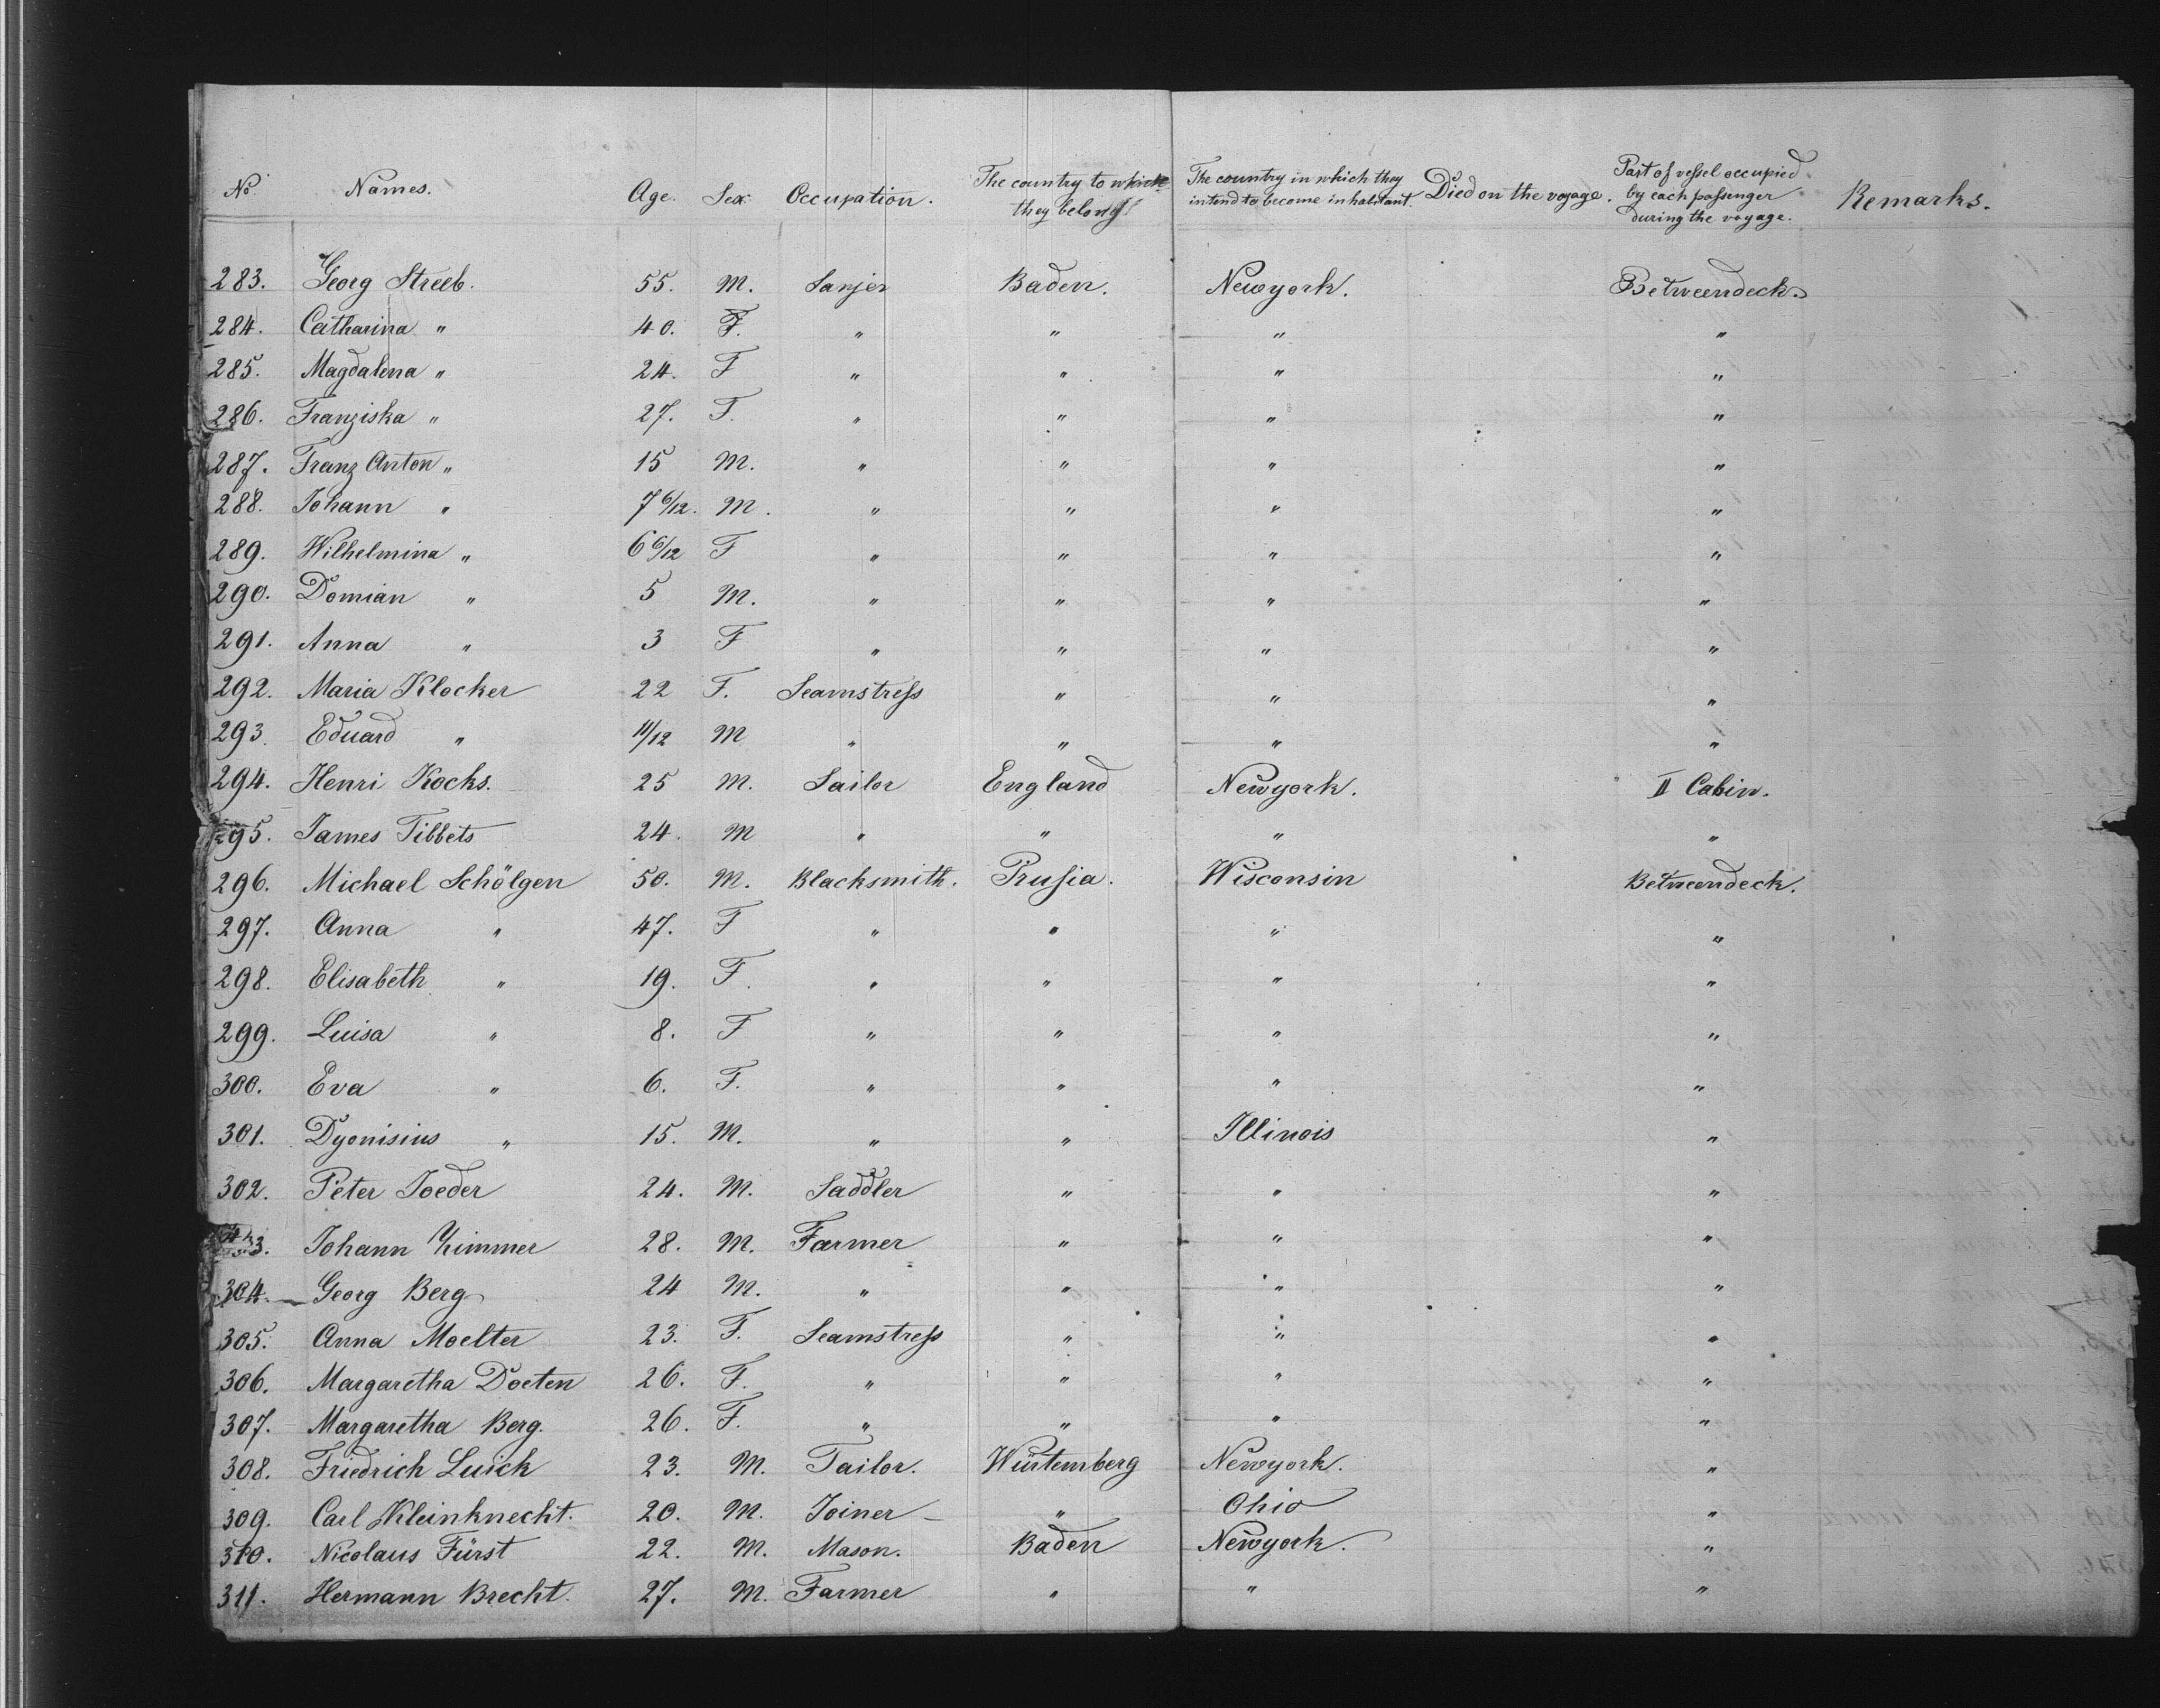 No. Names. Age. Sex. Occupation. The country to which they belong. The country in which they intend to become inhabitant. Died on the voyage. Part of vessel occupied by each passenger during the voyage. Remarks.
283. Georg Streeb. 55. M. Sanjer Baden. Newyork. Betweendeck.
284. Catharina " 40. F. " " " "
285. Magdalena " 24. F " " " "
286. Franziska " 27. F. " " " "
287. Franz Anton " 15 M. " " " "
288. Johann " 7 6/12. M. " " " "
289. Wilhelmina " 6 6/12 F " " " "
290. Domian " 5 M. " " " "
291. Anna " 3 F " " " "
292. Maria Klocker 22 F. Seamstress " " "
293. Eduard " 11/12 M " " " "
294. Henri Kocks. 25 M. Sailor England Newyork. II Cabin.
295. James Tibbets 24. M " " " "
296. Michael Schölgen 50. M. Blacksmith. Prusia. Wisconsin Betweendeck.
297. Anna " 47. F " " " "
298. Elisabeth " 19. F. " " " "
299. Luisa " 8. F " " " "
300. Eva " 6. F. " " " "
301. Dyonisius " 15. M. " " Illinois "
302. Peter Joeder 24. M. Saddler " " "
303. Johann Zimmer 28. M. Farmer " " "
304. Georg Berg 24 M. " " " "
305. Anna Moelter 23. F. Seamstress " " "
306. Margaretha Doeten 26. F. " " " "
307. Margaretha Berg. 26. F. " " " "
308. Friedrich Luick 23. M. Tailor. Würtemberg Newyork. "
309. Carl Kleinknecht. 20. M. Joiner " Ohio "
310. Nicolaus Fürst 22. M. Mason. Baden Newyork. "
311. Hermann Brecht. 27. M. Farmer " " "